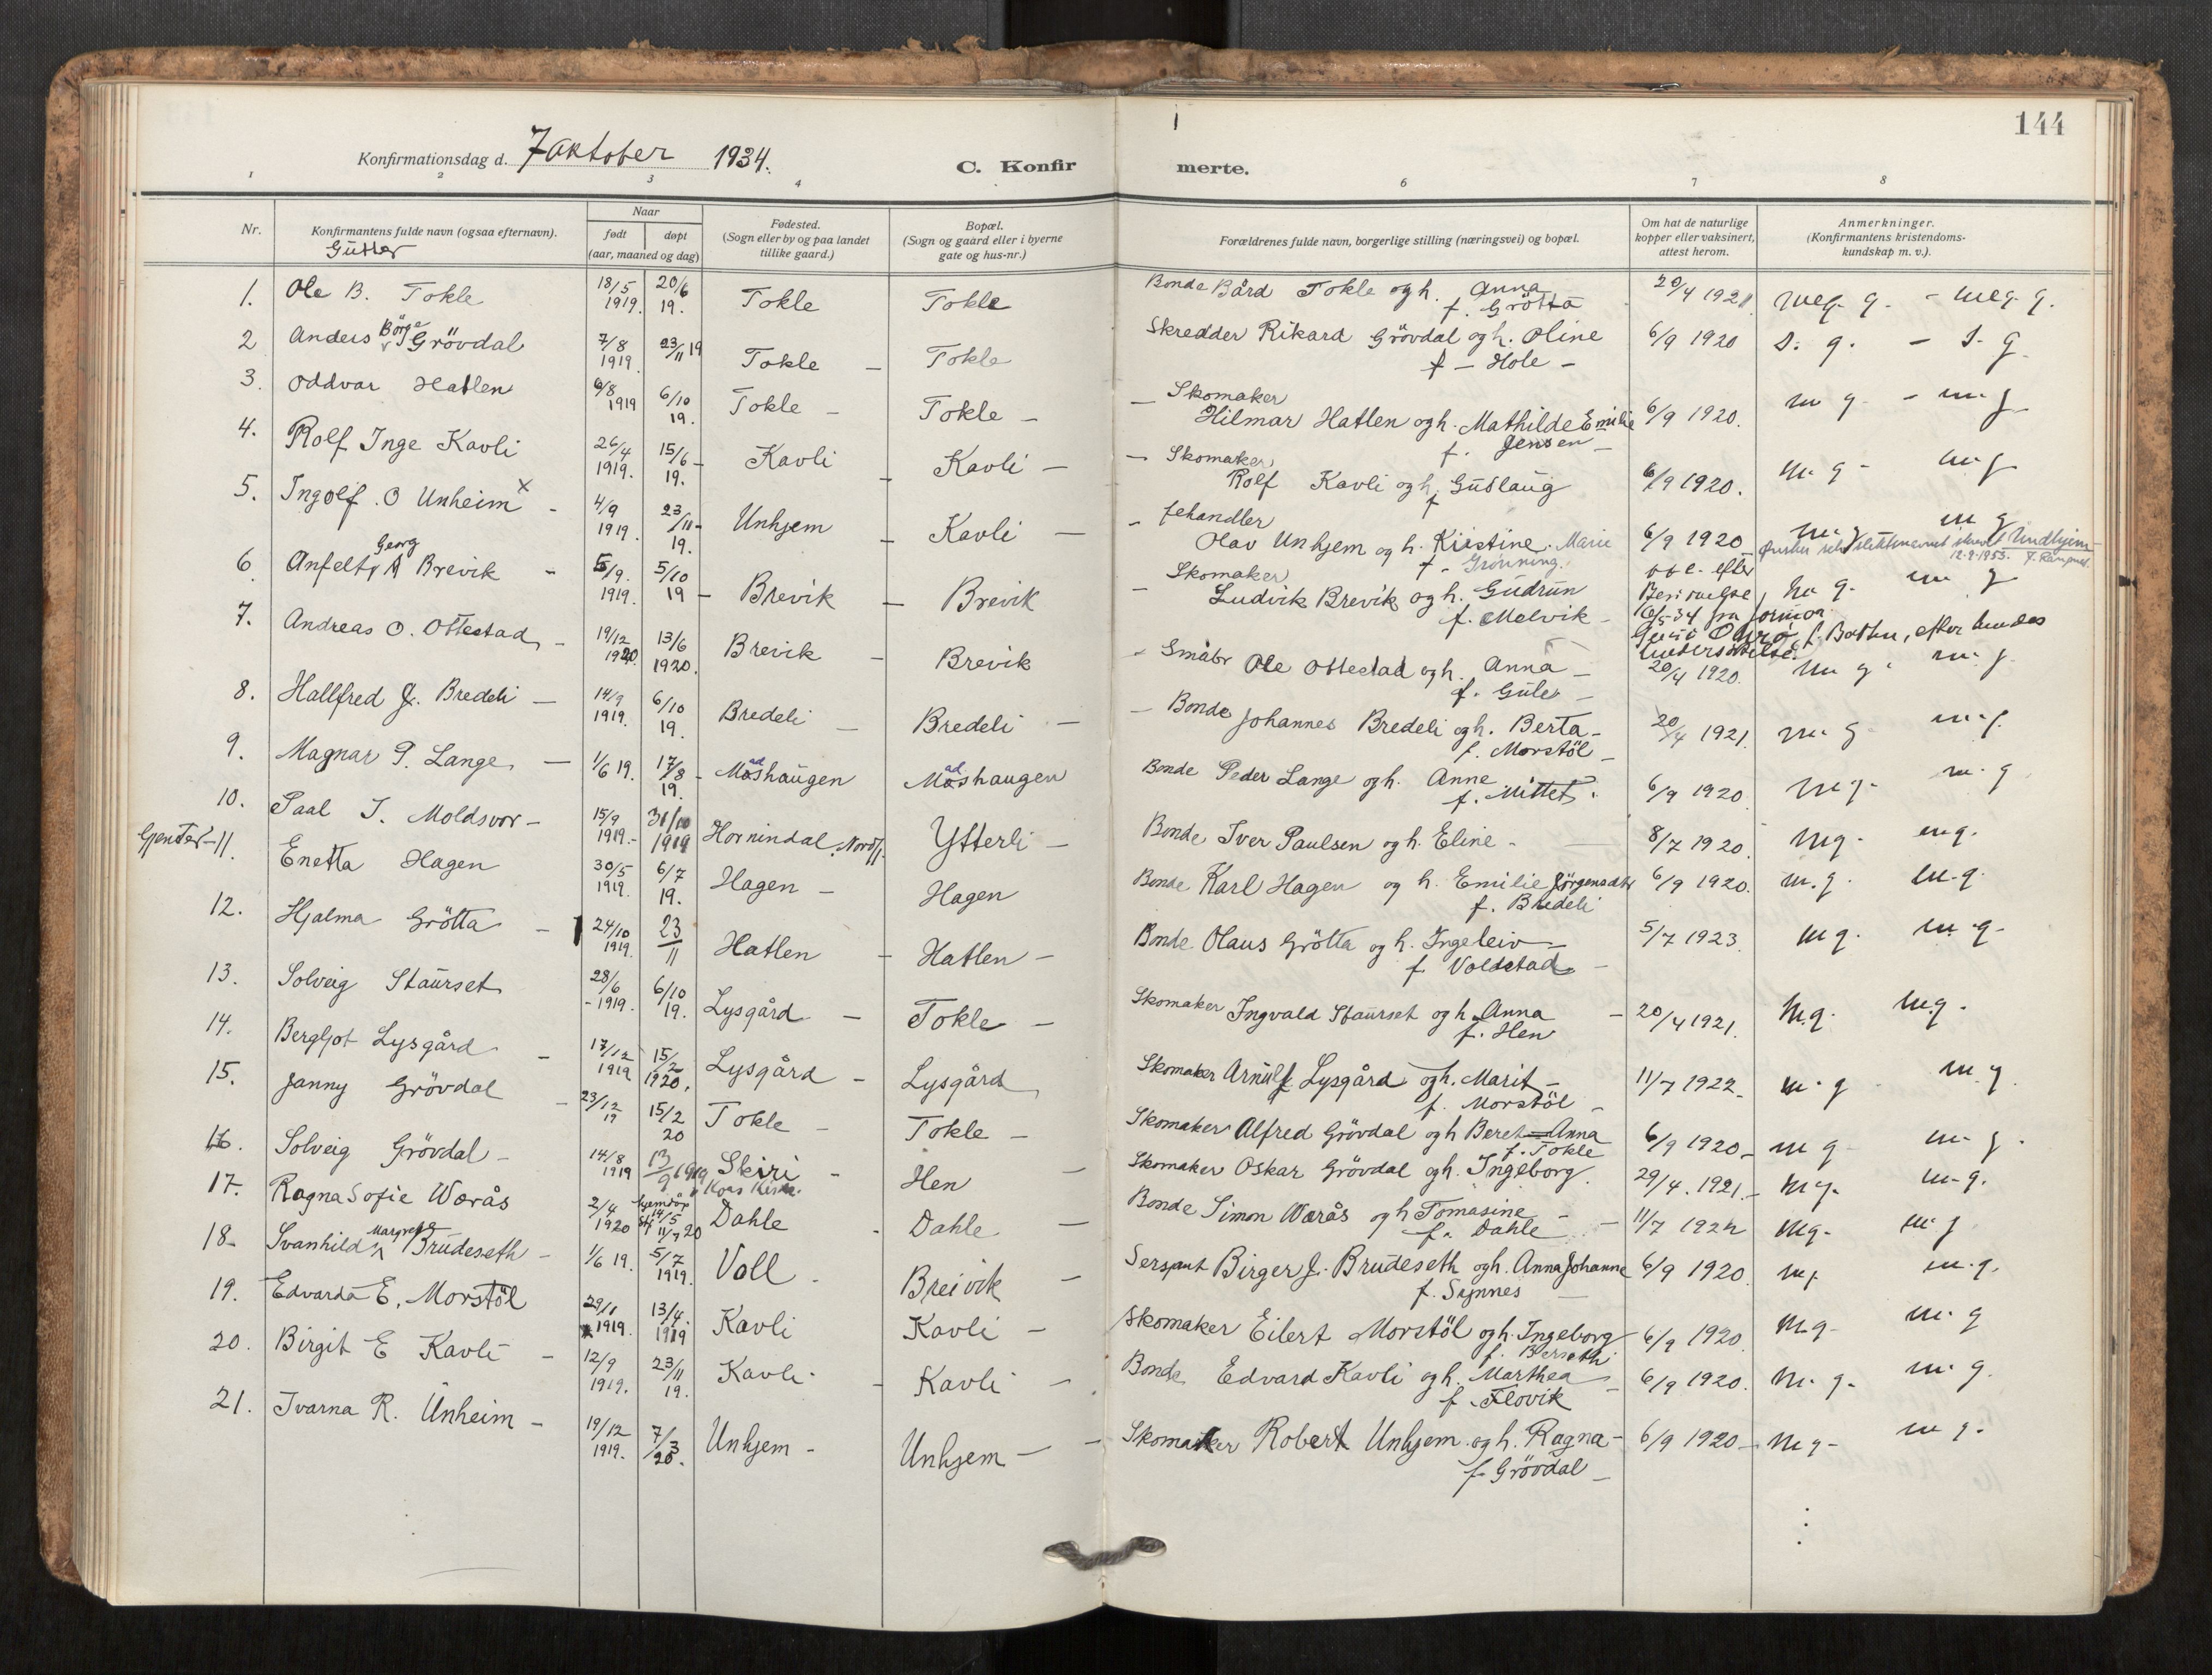 144
Konfirmationsdag d. 7 oktober 1934.
C. Konfir merte.
1 2 3 4 6 7 8
Nr.
Konfirmantens fulde navn (ogsaa efternavn).
Gutter
Naar
født døpt
(aar, maaned og dag)
Fødested.
(Sogn eller by og paa landet
tillike gaard.)
Bopæl.
(Sogn og gaard eller i byerne
gate og hus-nr.)
Forældrenes fulde navn, borgerlige stilling (næringsvei) og bopæl.
Om hat de naturlige
kopper eller vaksinert,
attest herom.
Anmerkninger.
(Konfirmantens kristendoms-
kundskap m. v.).
1. Ole B. Tokle 18/5 1919. 20/6 19. Tokle Tokle Bonde Bård Tokle og h. Anna 20/4 1921 meg. g. - meg. g.
f. Grötta
2 Anders Börge Grövdal 7/8 1919. 23/11 19 Tokle – Tokle Skredder Rikard Grövdal og h. Oline 6/9 1920 S. g. – S. g.
f – Hole –
3. Oddvar Hatlen 6/8 1919 6/10 19. Tokle – Tokle – Skomaker
Hilmar Hatlen og h. Mathilde Emilie 6/9 1920. m g. - m. g
f. Jensen –
4. Rolf Inge Kavli 26/4 1919. 15/6 19. Kavli – Kavli – Skomaker
Rolf Kavli og h. Guslaug 6/9 1920. m. g - m. g
f
5. Ingolf. O Unheim x 4/9 1919. 23/11 19. Unhjem – Kavli – Fehandler
Olav Unhjem og h. Kristine. Marie 6/9 1920 m. g m g
f - Grönning.
Ønsker slektsnavnet skrevet Undhjem
12-9-1955.
6. Anfelt Georg Brevik - 5/9. 1919. 5/10 19 – Brevik – Brevik Skomaker
Ludvik Brevik og h. Gudrun m g. m g
f. Melvik –
7. Andreas O. Ottestad – 19/12 1920 13/6 1920. Brevik – Brevik Småbr Ole Ottestad og h. Anna – 20/4 1920. m g m. g.
f. Gule –
8. Hallfred J. Bredeli – 14/9 1919. 6/10 19. Bredeli – Bredeli – Bonde Johannes Bredeli og h. Berta – 20/4 1921. m. g m. g.
f. Morstöl –
9. Magnar P. Lange – 1/6 19. 17/8 19. Moshaugen Moshaugen Bonde Peder Lange og h. Anne 6/9 1920. m g - m. g
f. Mittet.
10. Paal I. Moldsvor – 15/9 1919.– 31/10 1919 Hornindal, Nordfj. Ytterli – Bonde Iver Paulsen og h. Eline – 8/7 1920. mg - m g.
Gjenter – 11. Enetta Hagen 30/5 1919. 6/7 19. Hagen – Hagen Bonde Karl Hagen og h. Emilie Jörgensdtr 6/9 1920. m. g. m. g.
f. Bredeli
12. Hjalma Grötta – 24/10 1919. 23/11 Hatlen – Hatlen – Bonde Olaus Grötta og h. Ingeleiv – 5/7 1923. m g. m. g -
f. Voldstad –
13. Solveig Staurset 28/6 - 1919. 6/10 19. Lysgård – Tokle – Skomaker Ingvald Staurset og h. Anna – 20/4 1921. M.g. m.g.
f. Hen
14. Bergljot Lysgård – 17/12 1919 15/2 1920. Lysgård – Lysgård Skomaker Arnulf Lysgård og h. Marit – 11/7 1922 – m. g m. g
f. Morstöl –
15. Janny Grövdal – 23/12 19 15/2 20 Tokle – Tokle – Skomaker Alfred Grövdal og h Beret Anna 6/9 1920 – m g - m. g.
f. Tokle
16. Solveig Grövdal – 14/8 1919 13/9 1919 Skiri – Hen – Skomaker Oskar Grövdal og h. Ingeborg. 29/4. 1921. – m g. m. g.
17. Ragna Sofie Værås 2/4 1920 hjemdöp 14/5 stf 11/7 20 Dahle – Dahle – Bonde Simon Værås og h Tomasine – 11/7 1924 mg - m. g
f. Dahle
18 – Svanhild Margrete Brudeseth – 1/6 19. 5/7 1919. Voll – Breivik – Sersjant Birger J. Brudeseth og h. Anna Johanne 6/9 1920. m g m. g.
f. Synnes –
19. Edvarda E. Morstöl 29/1 1919. 13/4. 1919 Kavli Kavli – Skomaker Eilert Morstöl og h. Ingeborg 6/9 1920. M.g - m. g
f. Berseth
20. Birgit E Kavli – 12/9 1919. 23/11 19. Kavli – Kavli – Bonde Edvard Kavli og h. Marthea 6/9 1920. m. g - m. g.
f. Flovik
21. Ivarna R. Unheim – 19/12 1919. 7/3 20. Unhjem – Unhjem – Skomaker Robert Unhjem og h. Ragna – 6/9 1920 – M g - m g.
f. Grövdal –